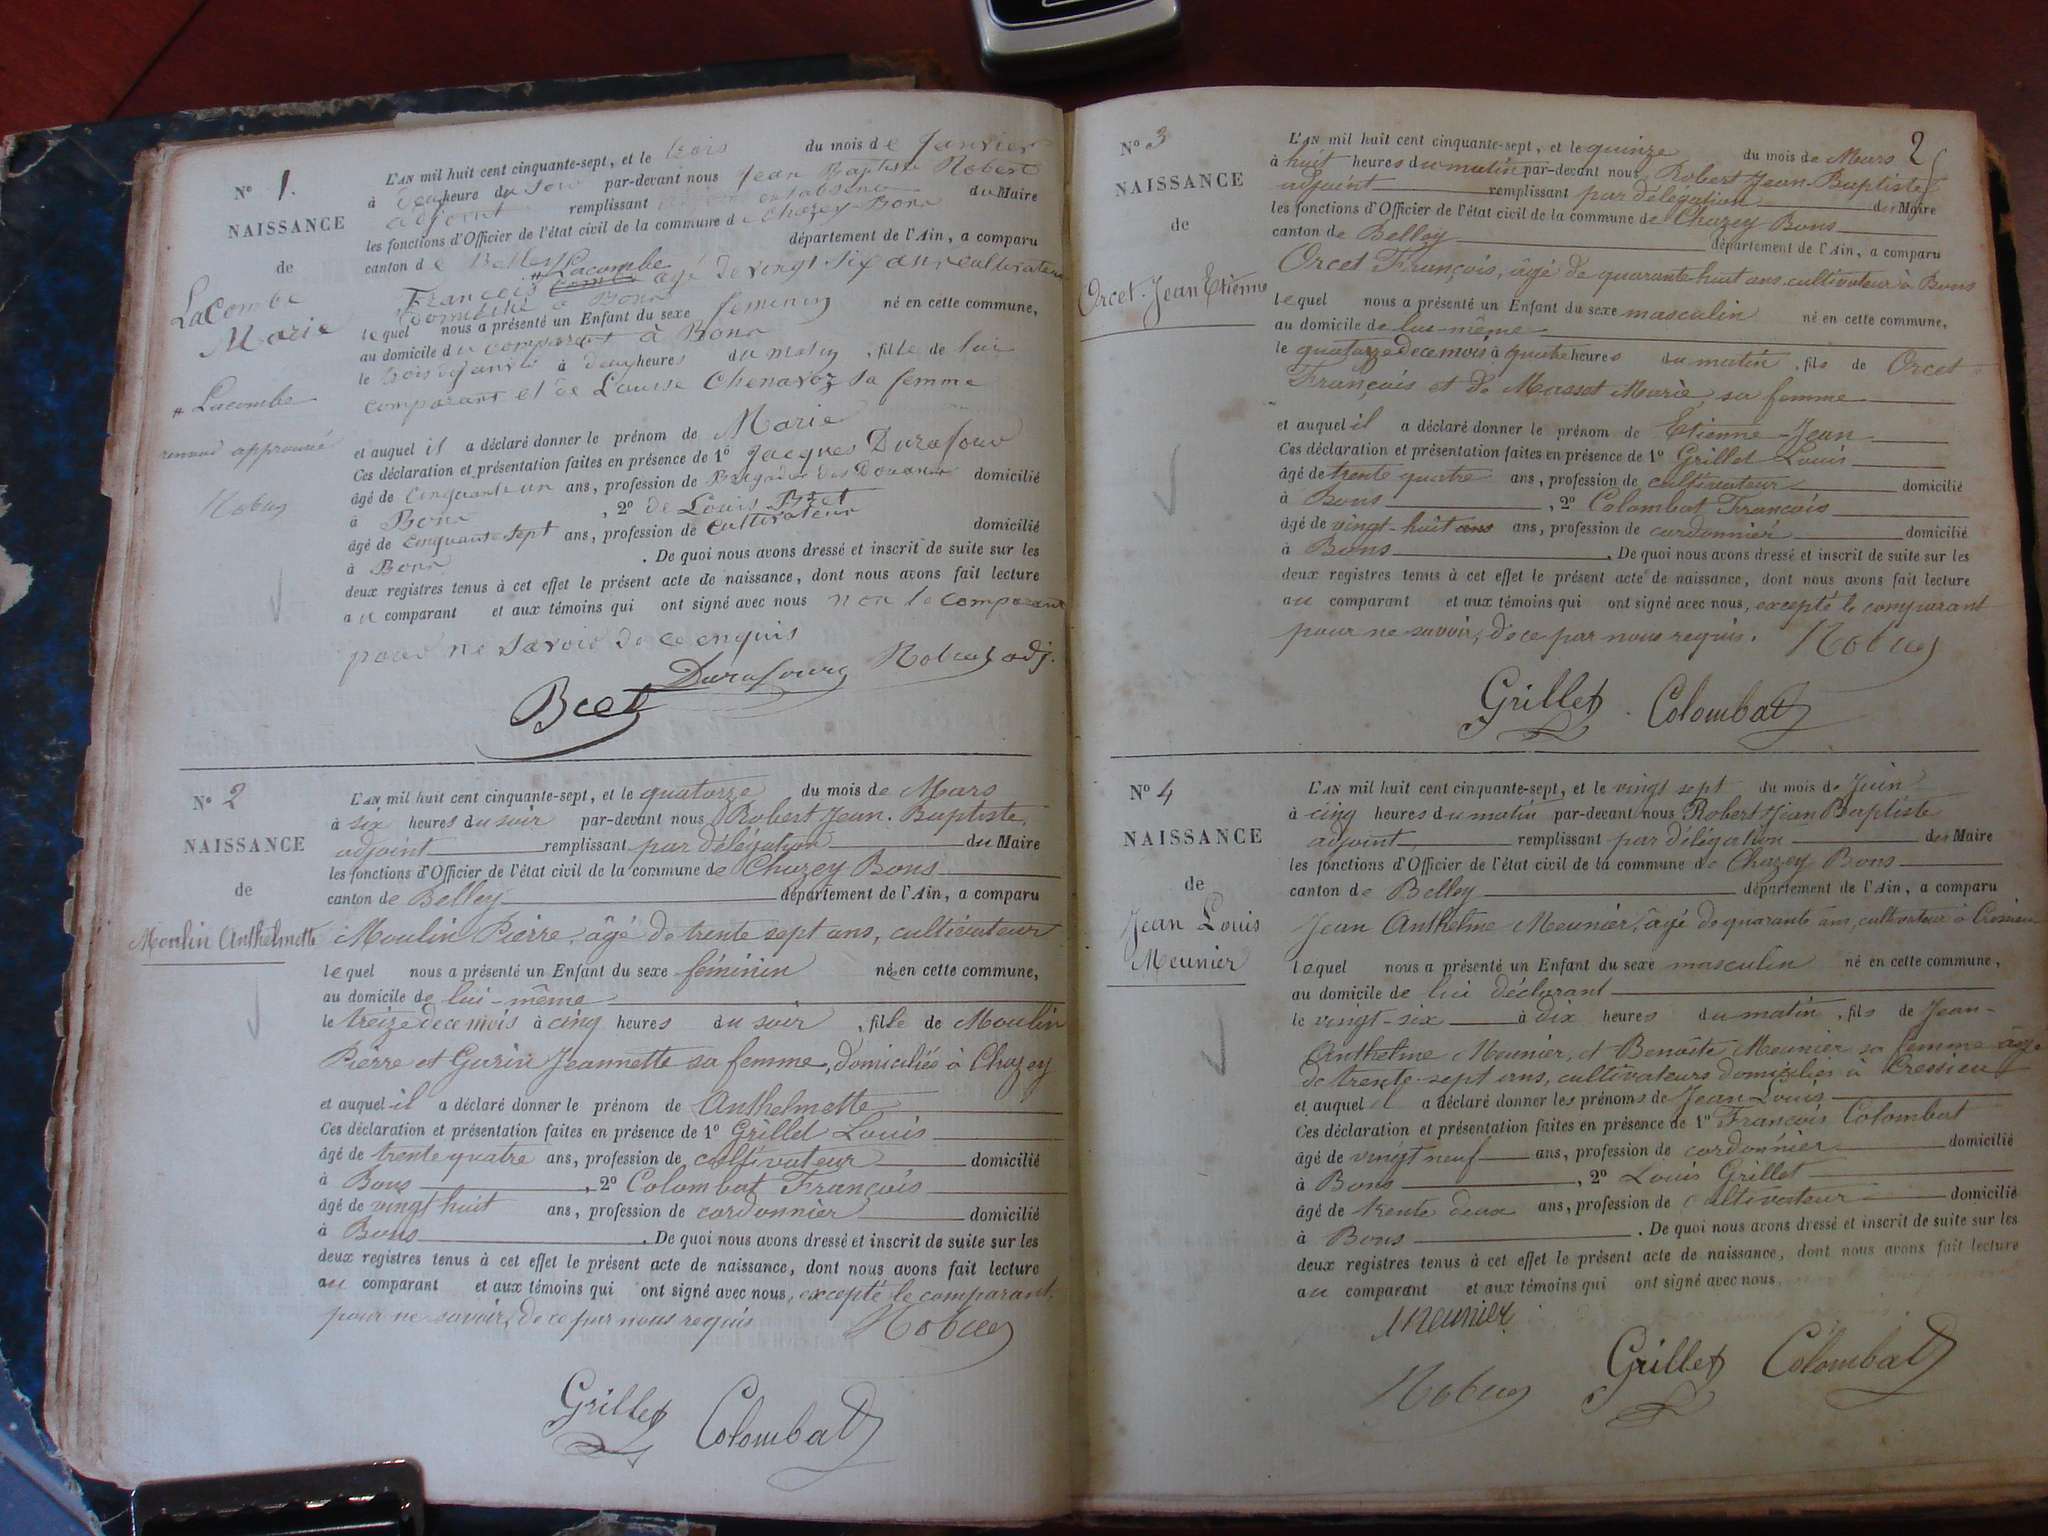 N° 1.
NAISSANCE
de
Lacombe
Marie
# Lacombe
renvoi approuvé
L'AN mil huit cent cinquante-sept, et le trois du mois de Janvier
à deux heure du soir par-devant nous Jean Baptiste Robert
adjoint remplissant du Maire
les fonctions d'Officier de l'état civil de la commune de Chazey-Bons
canton de Belley département de l'Ain, a comparu
# Lacombe
François agé de vingt six ans cultivateur
domicilié à Bons
lequel nous a présenté un Enfant du sexe feminin né en cette commune,
au domicile du comparant à Bons
le trois Janvier à deux heures du matin, fille de lui
comparant et de Louise Chenavoz sa femme
et auquel il a déclaré donner le prénom de Marie
Ces déclaration et présentation faites en présence de 1° Jacques Durafour
âgé de cinquante un ans, profession de Brigadier des Douanes domicilié
à Bons, 2° de Louis
âgé de cinquante sept ans, profession de cultivateur domicilié
à Bons. De quoi nous avons dressé et inscrit de suite sur les
deux registres tenus à cet effet le présent acte de naissance, dont nous avons fait lecture
au comparant et aux témoins qui ont signé avec nous non le comparant
pour ne savoir de ce enquis
Durafourg adj.
N° 2
NAISSANCE
de
Moulin Anthelmette
L'AN mil huit cent cinquante-sept, et le quatorze du mois de Mars
à six heures du soir par-devant nous Robert Jean-Baptiste,
adjoint remplissant par délégation du Maire
les fonctions d'Officier de l'état civil de la commune de Chazey Bons
canton de Belley département de l'Ain, a comparu
Moulin Pierre, âgé de trente sept ans, cultivateur
lequel nous a présenté un Enfant du sexe féminin né en cette commune,
au domicile de lui-même
le treize de ce mois à cinq heures du soir, fille de Moulin
Pierre et Gurin Jeannette sa femme, domiciliés à Chazey
et auquel il a déclaré donner le prénom de Anthelmette
Ces déclaration et présentation faites en présence de 1° Grillet Louis
âgé de trente quatre ans, profession de cultivateur domicilié
à Bons, 2° Colombat François
âgé de vingt huit ans, profession de cordonnier domicilié
à Bons. De quoi nous avons dressé et inscrit de suite sur les
deux registres tenus à cet effet le présent acte de naissance, dont nous avons fait lecture
au comparant et aux témoins qui ont signé avec nous, excepté le comparant
pour ne savoir, de ce par nous requis
Grillet Colombat
2
N° 3
NAISSANCE
de
Orcet Jean Etienne
L'AN mil huit cent cinquante-sept, et le quinze du mois de Mars
à huit heures du matin par-devant nous Robert Jean-Baptiste
adjoint remplissant par délégation du Maire
les fonctions d'Officier de l'état civil de la commune de Chazey Bons
canton de Belley département de l'Ain, a comparu
Orcet François, âgé de quarante huit ans, cultivateur à Bons
lequel nous a présenté un Enfant du sexe masculin né en cette commune,
au domicile de lui-même
le quatorze de ce mois à quatre heures du matin, fils de Orcet
François et de Masset Marie, sa femme
et auquel il a déclaré donner le prénom de Etienne-Jean
Ces déclaration et présentation faites en présence de 1° Grillet Louis
âgé de trente quatre ans, profession de cultivateur domicilié
à Bons, 2° Colombat François
âgé de vingt-huit ans ans, profession de cordonnier domicilié
à Bons. De quoi nous avons dressé et inscrit de suite sur les
deux registres tenus à cet effet le présent acte de naissance, dont nous avons fait lecture
au comparant et aux témoins qui ont signé avec nous, excepté le comparant
pour ne savoir, de ce par nous requis.
Grillet Colombat
N° 4
NAISSANCE
de
Jean Louis
Meunier
L'AN mil huit cent cinquante-sept, et le vingt sept du mois de Juin
à cinq heures du matin par-devant nous Robert Jean Baptiste
adjoint remplissant par délégation du Maire
les fonctions d'Officier de l'état civil de la commune de Chazey Bons
canton de Belley département de l'Ain, a comparu
Jean Anthelme Meunier, âgé de quarante ans, cultivateur à Cressieu
lequel nous a présenté un Enfant du sexe masculin né en cette commune,
au domicile de lui déclarant
le vingt-six à dix heures du matin, fils de Jean-
Anthelme Meunier, et Benoîte Meunier sa femme âgée
de trente-sept ans, cultivateurs domiciliés à Cressieu
et auquel il a déclaré donner les prénoms de Jean Louis
Ces déclaration et présentation faites en présence de 1° François Colombat
âgé de vingt neuf ans, profession de cordonnier domicilié
à Bons, 2° Louis Grillet
âgé de trente deux ans, profession de cultivateur domicilié
à Bons. De quoi nous avons dressé et inscrit de suite sur les
deux registres tenus à cet effet le présent acte de naissance, dont nous avons fait lecture
au comparant et aux témoins qui ont signé avec nous,
Meunier
Grillet Colombat